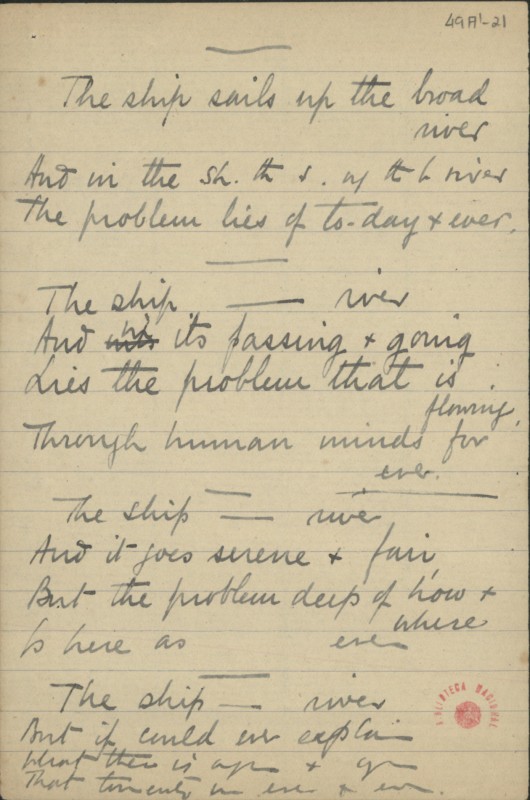 49A¹-21
The ship sails up the broad
river
And in the sh. th s. up th b river
The problem lies of to-day & ever.
The ship — river
And in its passing & going
Lies the problem that is
flowing
Through human minds for
ever.
The ship — river
And it goes serene & fair,
But the problem deep of how &
where
Is here as ever
The ship — river
But if could ever explain
What there is again & again
That torments us ever & ever.
BIBLIOTECA NACIONAL